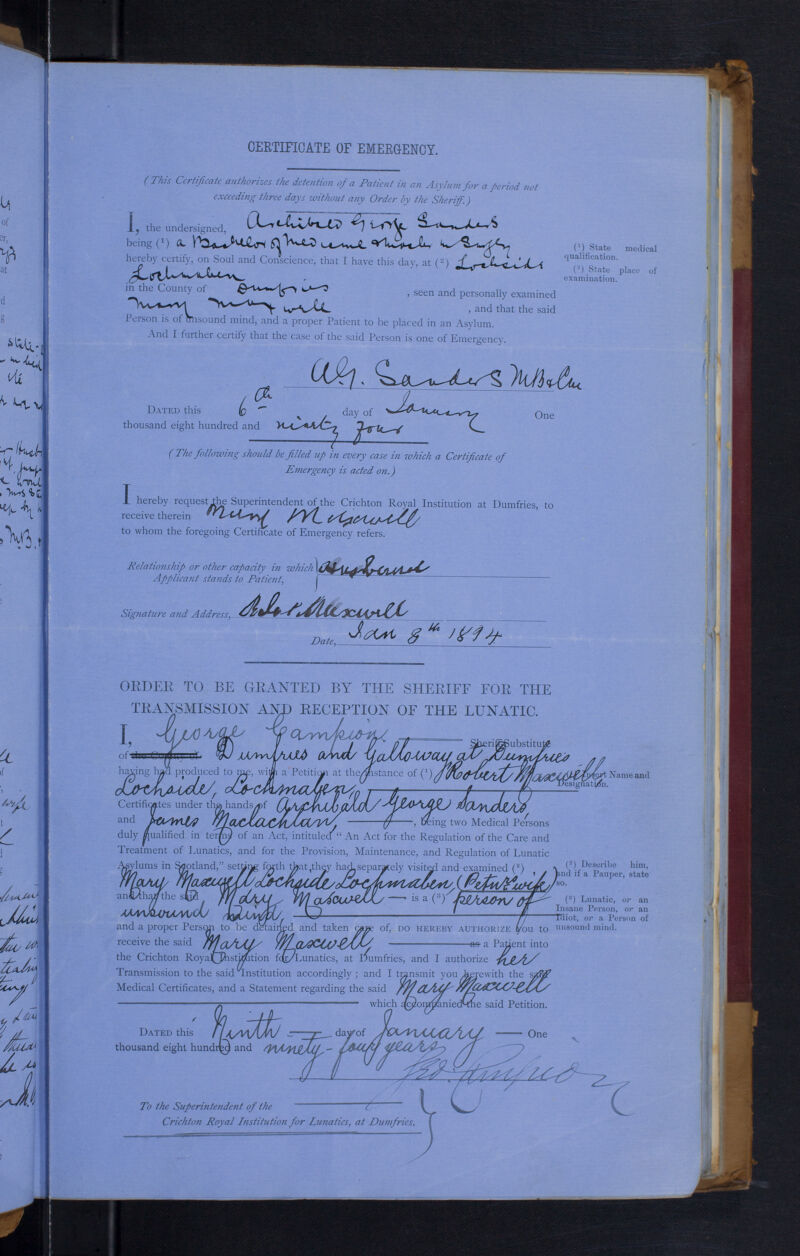 CERTIFICATE OF EMERGENCY.
(This Certificate authorizes the detention of a Patient in an Asylum for a period not
exceeding three days without any Order by the Sheriff.)
I, the undersigned, Archibald George Sanders
being (¹) a Bachelor of Medicine & Surgery
(¹) State medical
qualification.
hereby certify, on Soul and Conscience, that I have this day, at (²) Lochside
(²) State place of
examination.
Lochmaben
in the County of Dumfries, seen and personally examined
Mary Maxwell, and that the said
Person is of unsound mind, and a proper Patient to be placed in an Asylum.
And I further certify that the case of the said Person is one of Emergency.
A.G. Sanders M.B. & C.M.
DATED this 6th day of January One
thousand eight hundred and ninety four
(The following should be filled up in every case in which a Certificate of
Emergency is acted on.)
I hereby request the Superintendent of the Crichton Royal Institution at Dumfries, to
receive therein Mary Maxwell
to whom the foregoing Certificate of Emergency refers.
Relationship or other capacity in which
Applicant stands to Patient, Husband
Signature and Address, Robt. Maxwell
Date, Jan 8th 1894
ORDER TO BE GRANTED BY THE SHERIFF FOR THE
TRANSMISSION AND RECEPTION OF THE LUNATIC.
I, George Campion Sheriff Substitute
of the County of Dumfries and Galloway at Dumfries
having had produced to me, with a Petition at the instance of (¹) Robert Maxwell
(¹) Insert Name and
Designation.
Lochside, Lochmaben,
Certificates under the hands of Archibald George Sanders,
and James Maclachlan, being two Medical Persons
duly qualified in terms of an Act, intituled "An Act for the Regulation of the Care and
Treatment of Lunatics, and for the Provision, Maintenance, and Regulation of Lunatic
Asylums in Scotland," setting forth that they had separately visited and examined (²)
(²) Describe him,
and if a Pauper, state
so.
Mary Maxwell Lochside Lochmaben (Petnr's wife)
and that the said Mary Maxwell is a (³) person of
(³) Lunatic, or an
Insane Person, or an
Idiot, or a Person of
unsound mind.
unsound mind,
and a proper Person to be detained and taken care of, DO HEREBY AUTHORIZE you to
receive the said Mary Maxwell, as a Patient into
the Crichton Royal Institution for Lunatics, at Dumfries, and I authorize her
Transmission to the said Institution accordingly; and I transmit you herewith the said
Medical Certificates, and a Statement regarding the said Mary Maxwell
which accompanied the said Petition.
DATED this Ninth day of January One
thousand eight hundred and ninety-four years
Geo. Campion
To the Superintendent of the
Crichton Royal Institution for Lunatics, at Dumfries.